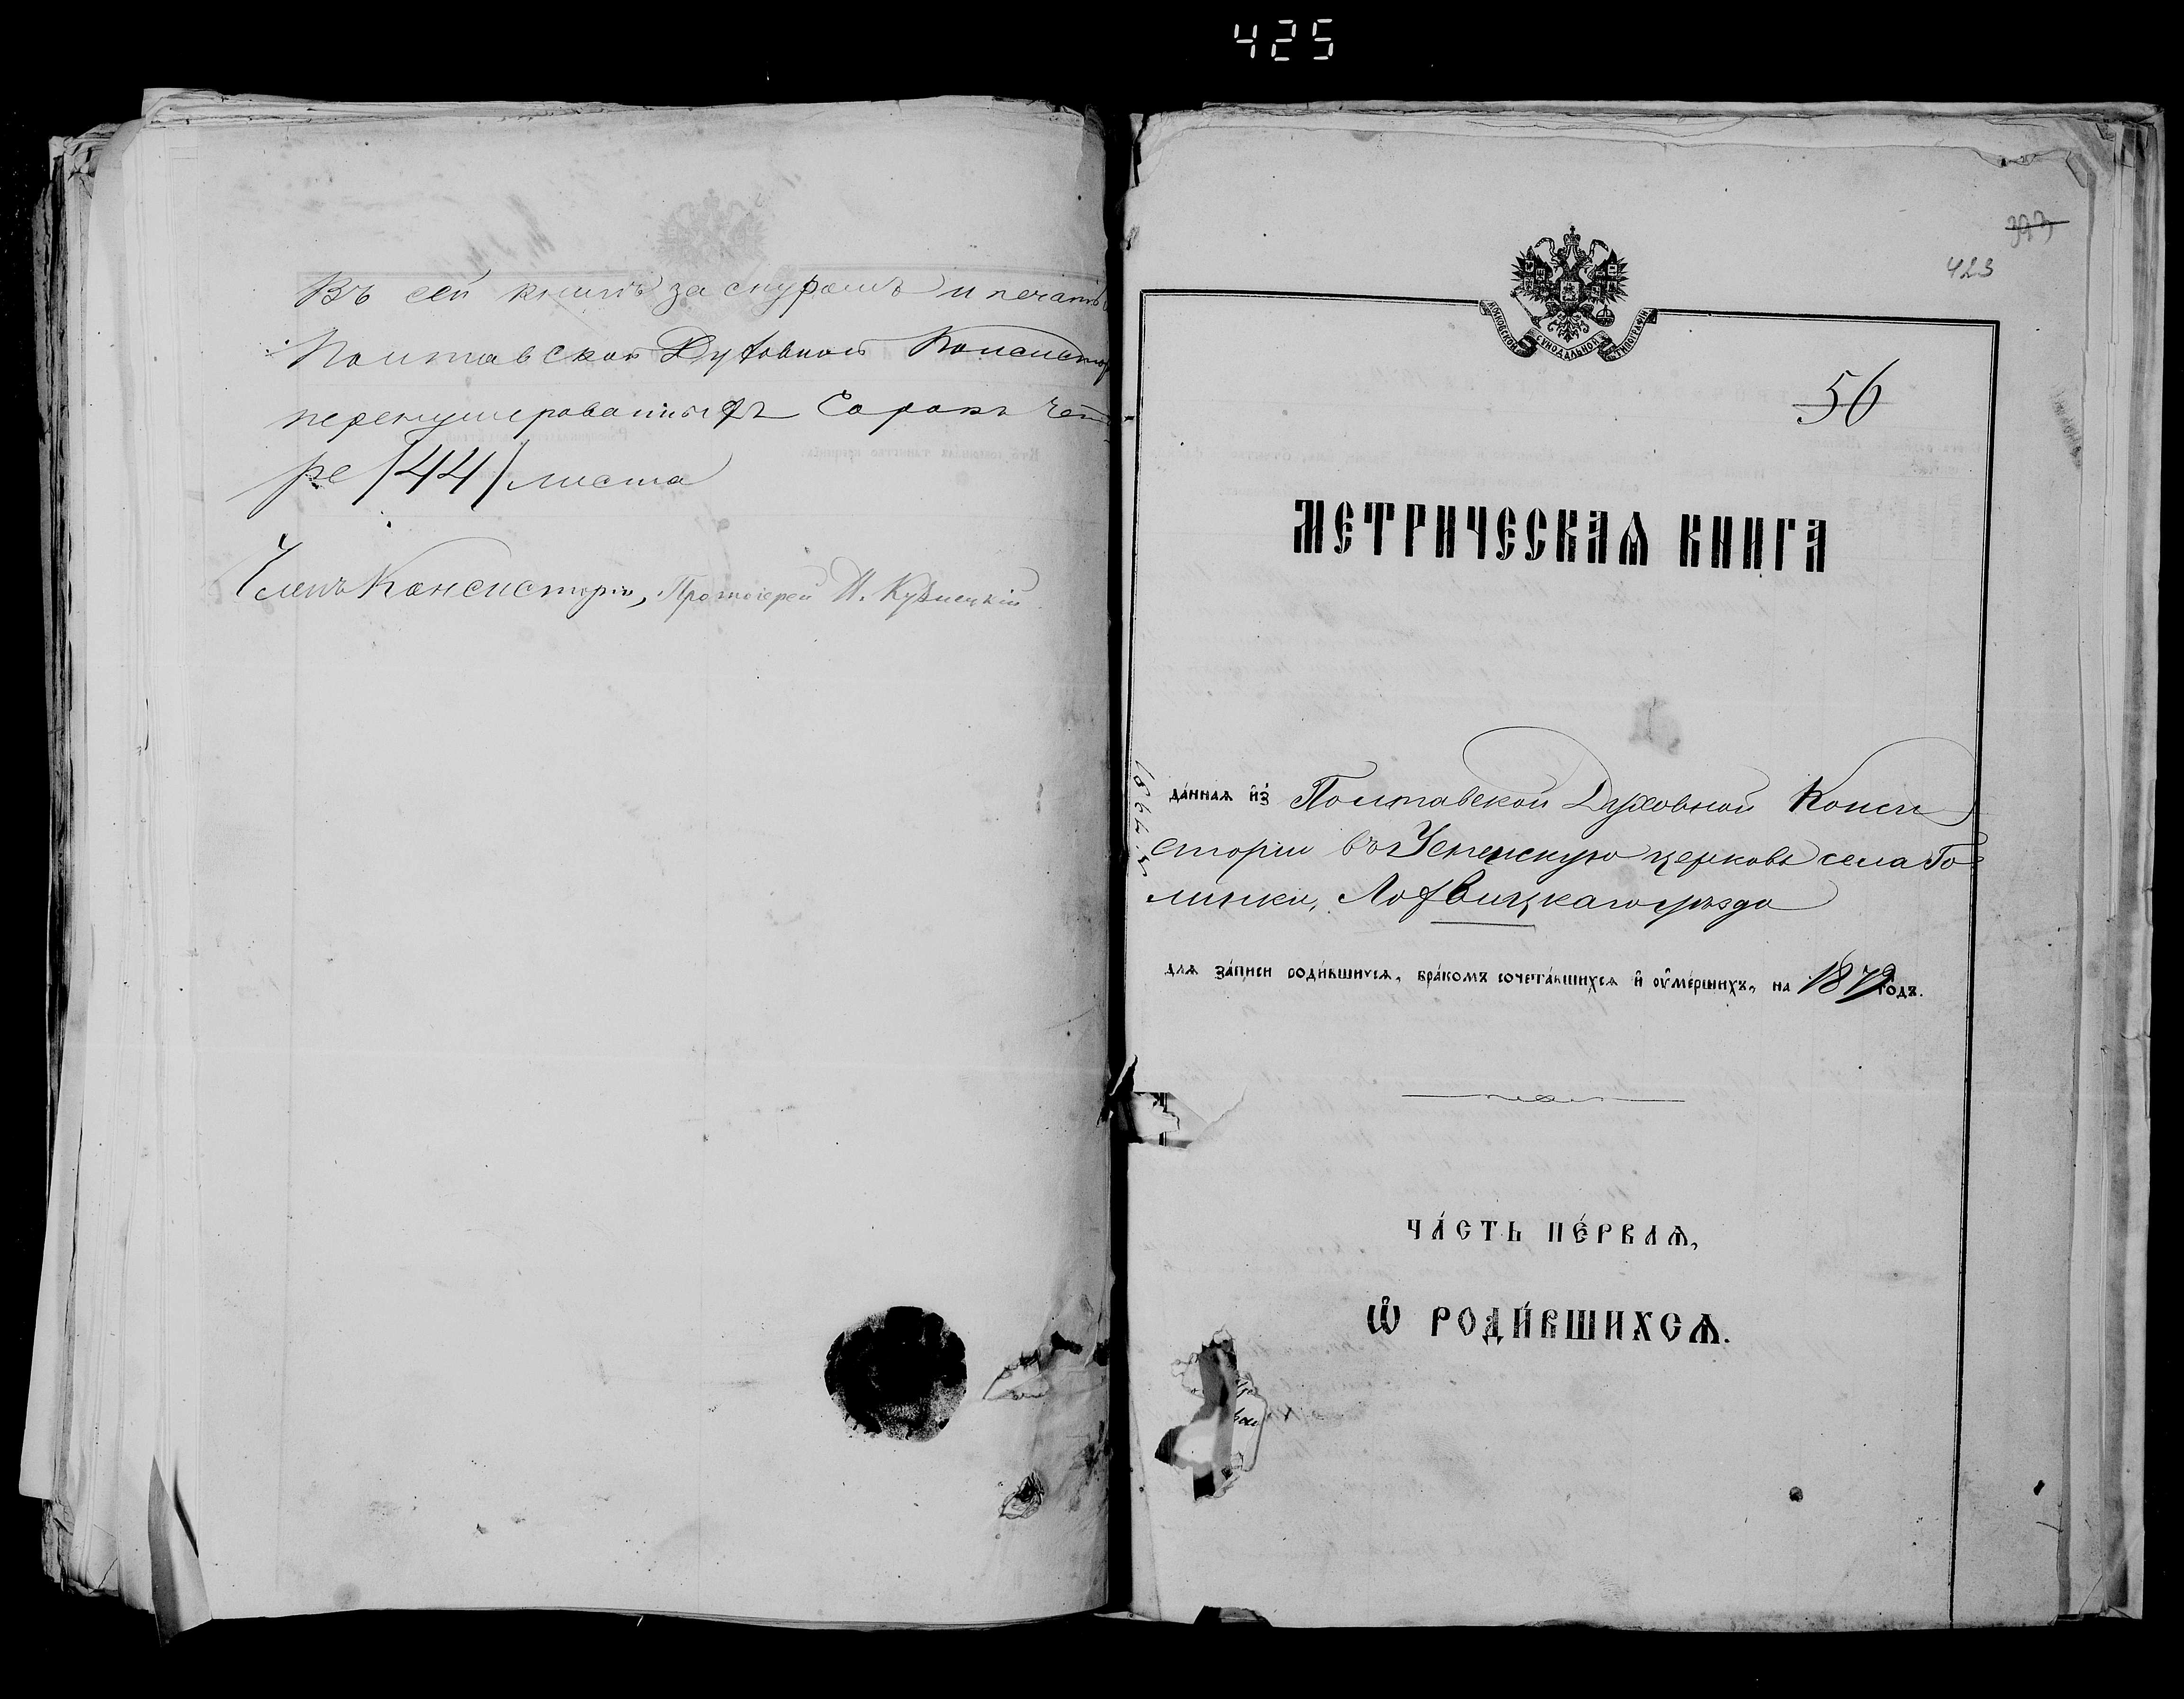 425
Въ сей книгѣ за снуромъ и печатью
Полтавской Духовной Консистор
перенумерованныхъ Сорокъ четы
ре /44/ листа
Членъ Консисторіи, Протоіерей Н. Кузнецкій
423
МОСКОВСКОЙ СУНОДАЛЬНОЙ ТИПОГРАФІИ
56
МЕТРИЧЕСКАѦ КНИГА
да́ннаѧ и҆з̾ Полтавской Духовной Конси
сторіи въ Успенскую церковь села То=
линки, Лохвицкаго уѣзда
длѧ за́писи роди́вшихсѧ, бра́комъ сочета́вшихсѧ и҆ ᲂу҆ме́ршихъ, на 1879 го́дъ.
ЧА́СТЬ ПЕ́РВАѦ,
Ѽ РОДИ́ВШИХСѦ.